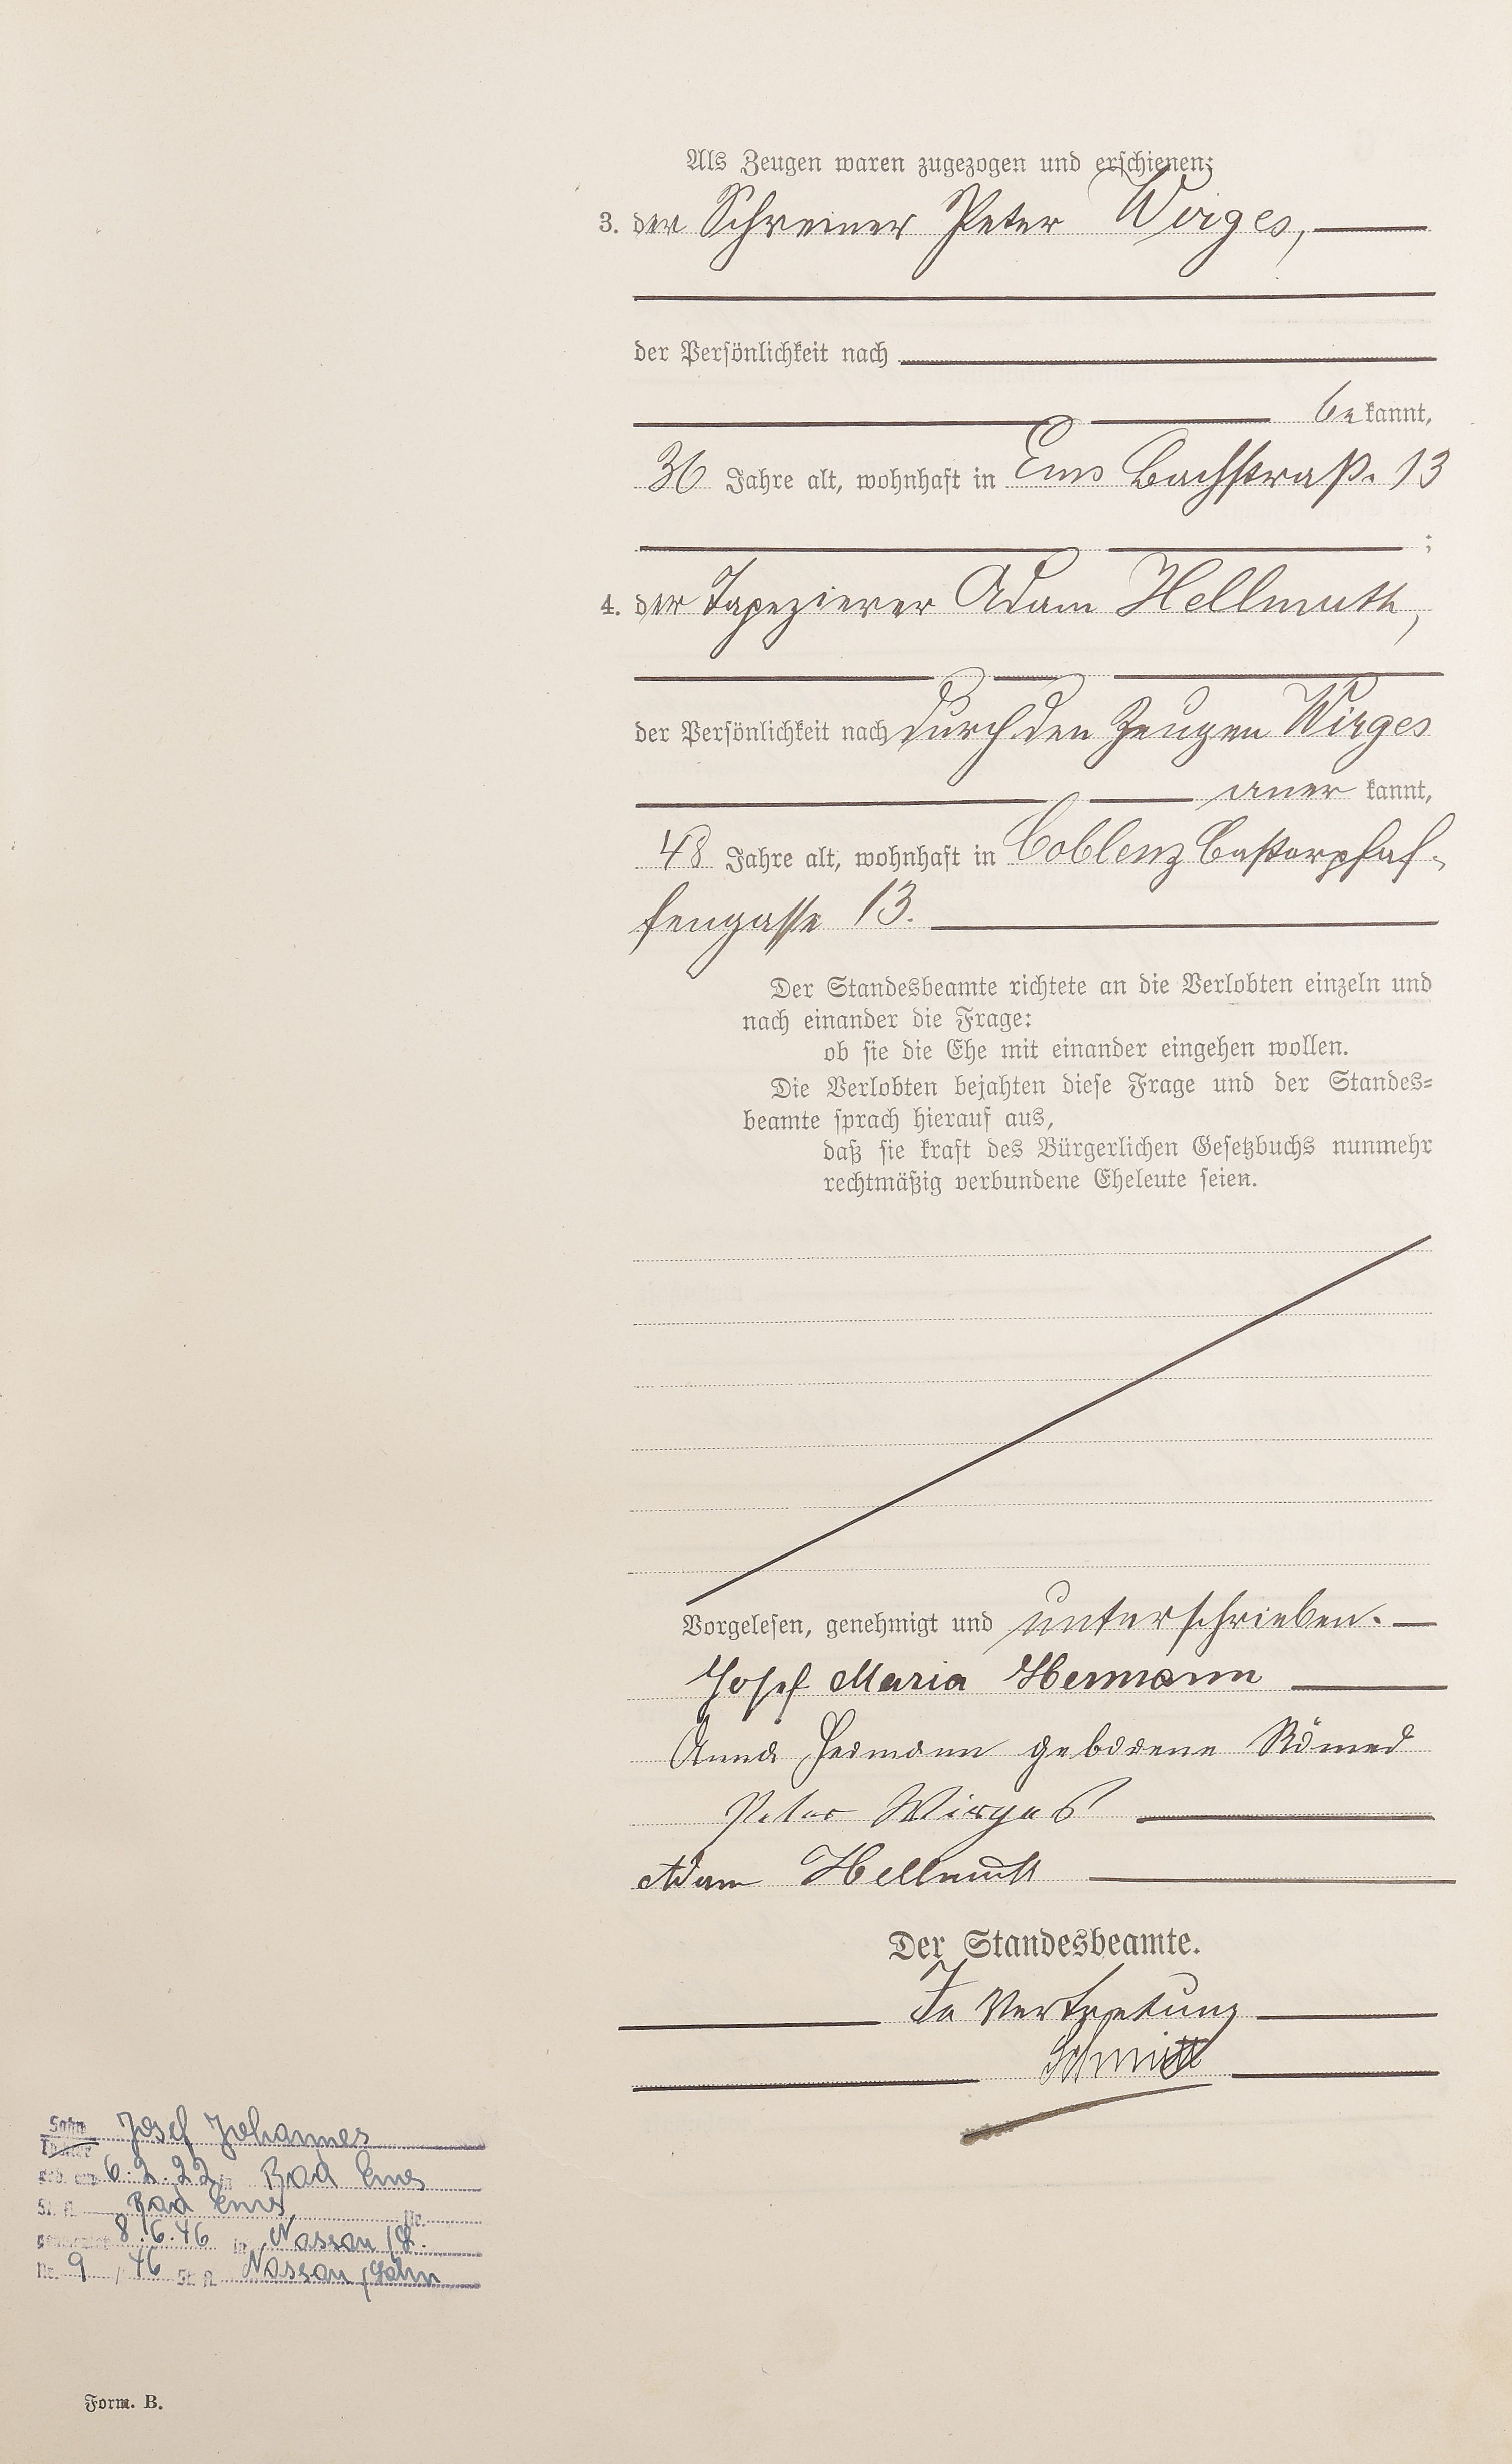 Als Zeugen waren zugezogen und erschienen:
3. der Schreiner Peter Wirges,
der Persönlichkeit nach
bekannt,
36 Jahre alt, wohnhaft in Ems Bachstraße 13
;
4. der Tapezierer Adam Hellmuth,
der Persönlichkeit nach durch den Zeugen Wirges
anerkannt,
48 Jahre alt, wohnhaft in Coblenz Castorpfaf-
fengasse 13.
Der Standesbeamte richtete an die Verlobten einzeln und
nach einander die Frage:
ob sie die Ehe mit einander eingehen wollen.
Die Verlobten bejahten diese Frage und der Standes-
beamte sprach hierauf aus,
daß sie kraft des Bürgerlichen Gesetzbuchs nunmehr
rechtmäßig verbundene Eheleute seien.
Vorgelesen, genehmigt und unterschrieben.
Josef Maria Hermann
Anna Hermann geborene
Peter Wirges
Adam Hellmuth
Der Standesbeamte.
In Vertretung
Schmitt
Sohn Josef Johannes
Tochter
geb. am 6.2.22 in Bad Ems
St. A. Bad Ems Nr.
8.6.46 in Nassau/L.
Nr. 9/46 St. A. Nassau/Lahn
Form. B.